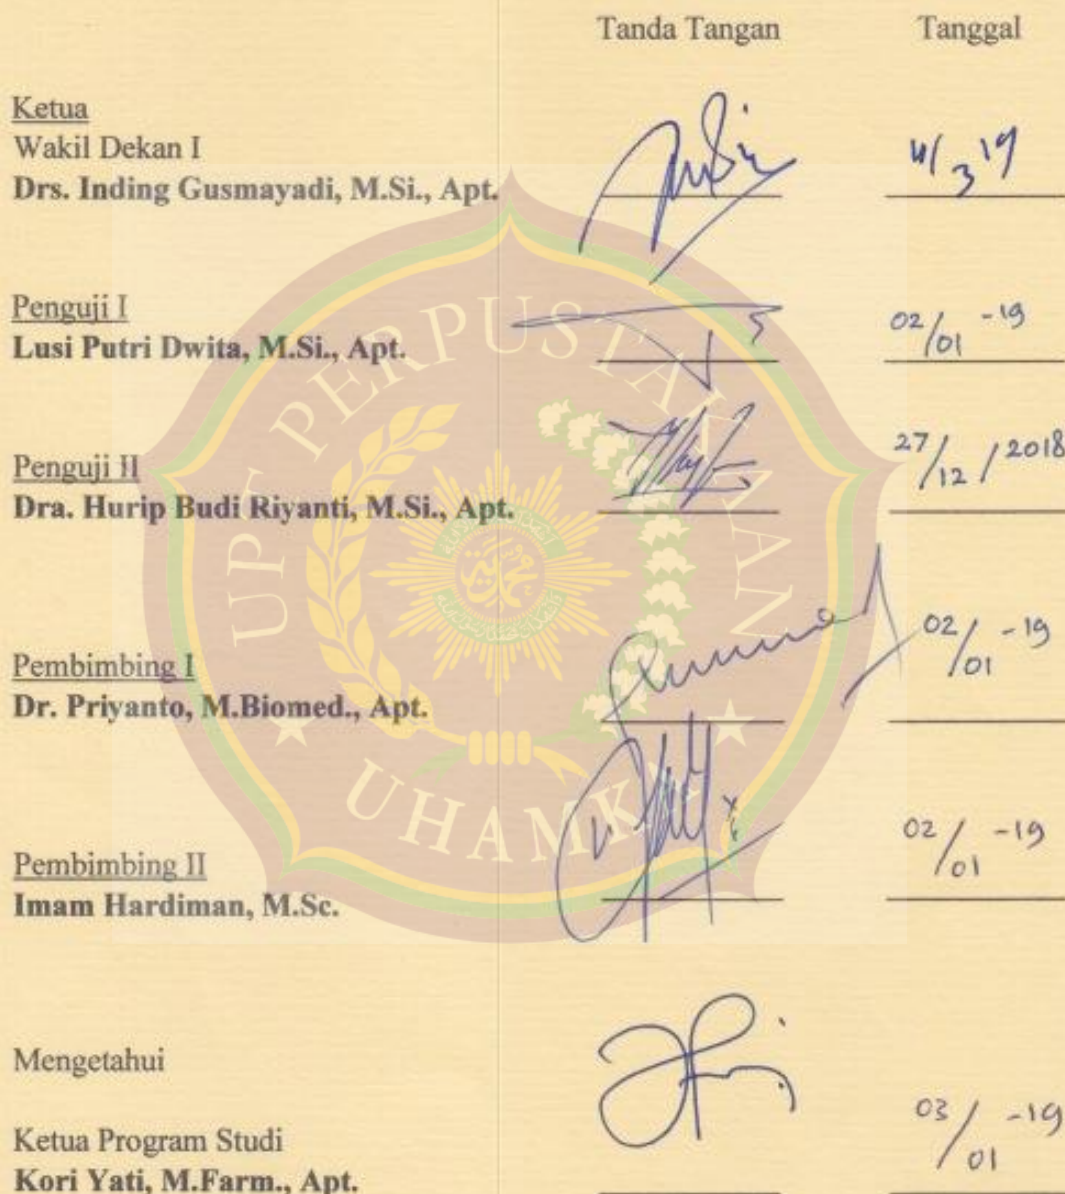 Tanda Tangan Tanggal
Ketua
Wakil Dekan I
Drs. Inding Gusmayadi, M.Si., Apt. 4/3 19
Penguji I
Lusi Putri Dwita, M.Si., Apt. 02/01 -19
Penguji II
Dra. Hurip Budi Riyanti, M.Si., Apt. 27/12/2018
Pembimbing I
Dr. Priyanto, M.Biomed., Apt. 02/01 -19
Pembimbing II
Imam Hardiman, M.Sc. 02/01 -19
Mengetahui
Ketua Program Studi
Kori Yati, M.Farm., Apt. 03/01 -19
UPT PERPUSTAKAAN
UHAMKA